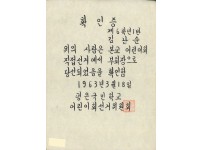 확인증
제6학년1반
김난순
위의 사람은 본교 어린이회
직접선거에서 부회장으로
당선되었음을 확인함
1963년3월18일
국민학교
어린이회선거위원회